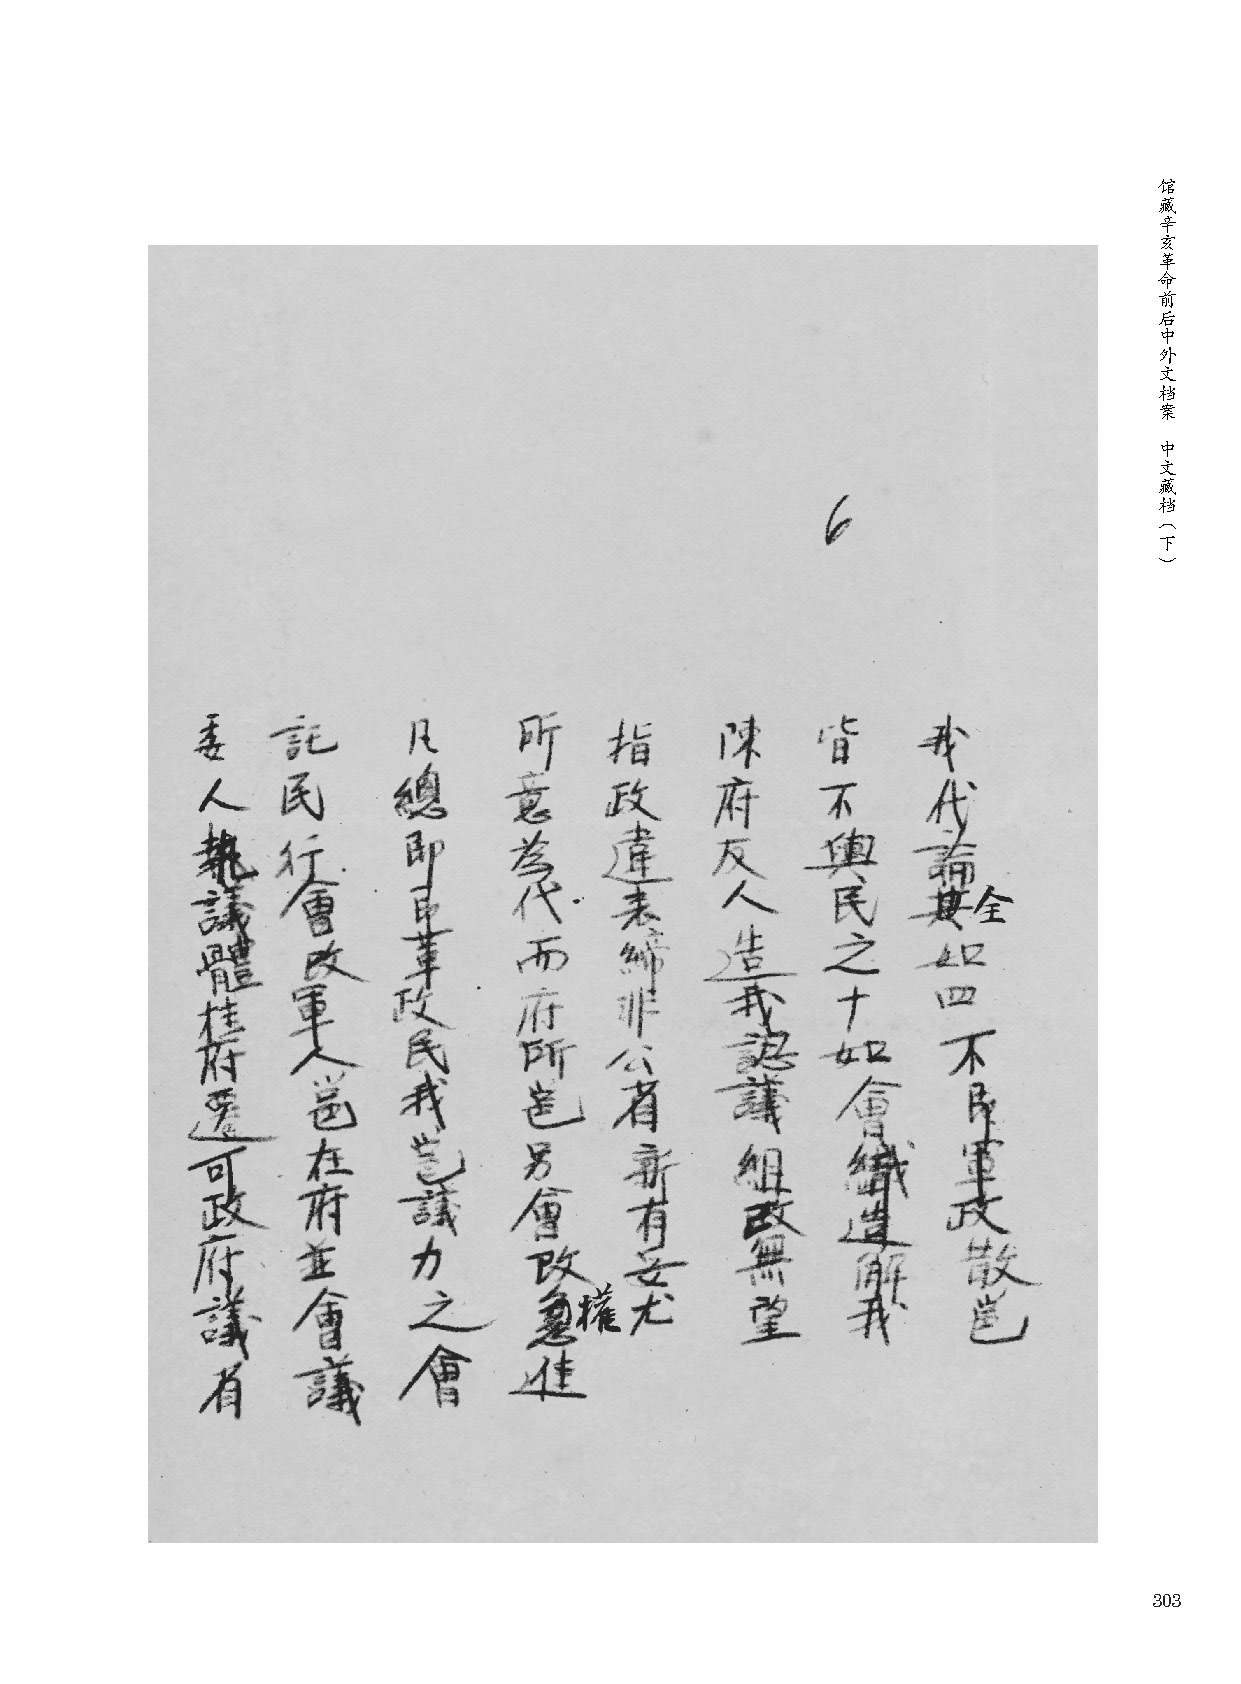 馆藏辛亥革命前后中外文档案 中文藏档（下）
6
我代論其全如四不民軍政散邕
皆不與民之十如會織造解我
陳府反人造我認議組改無望
指政違表締非公者新有妥尤
所意為代而府所邕另會改權進
凡總即民革政民我邕議力之會
記民行會改軍人邕在府並會議
委人執議體桂府可政府議者
303